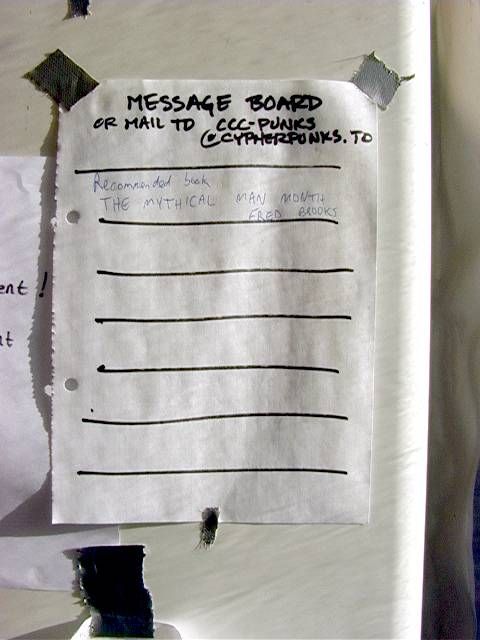 MESSAGE BOARD
OR MAIL TO CCC-PUNKS
@CYPHERPUNKS.TO
Recommended book
THE MYTHICAL MAN MONTH
FRED BROOKS
ent!